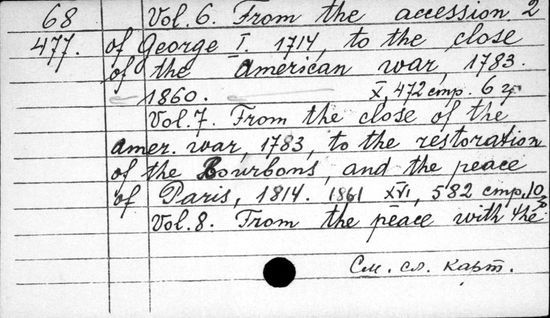 68 Vol. 6. From the accession 2
477. of George I. 1714, to the close
of the American war, 1783.
1860. X, 472 стр. 6
Vol. 7. From the close of the
Amer. war, 1783, to the restoration
of the Bourbons, and the peace
of Paris, 1814. 1861 XVI, 582 стр., 10
Vol. 8. From the peace with the
См. сл. карт.